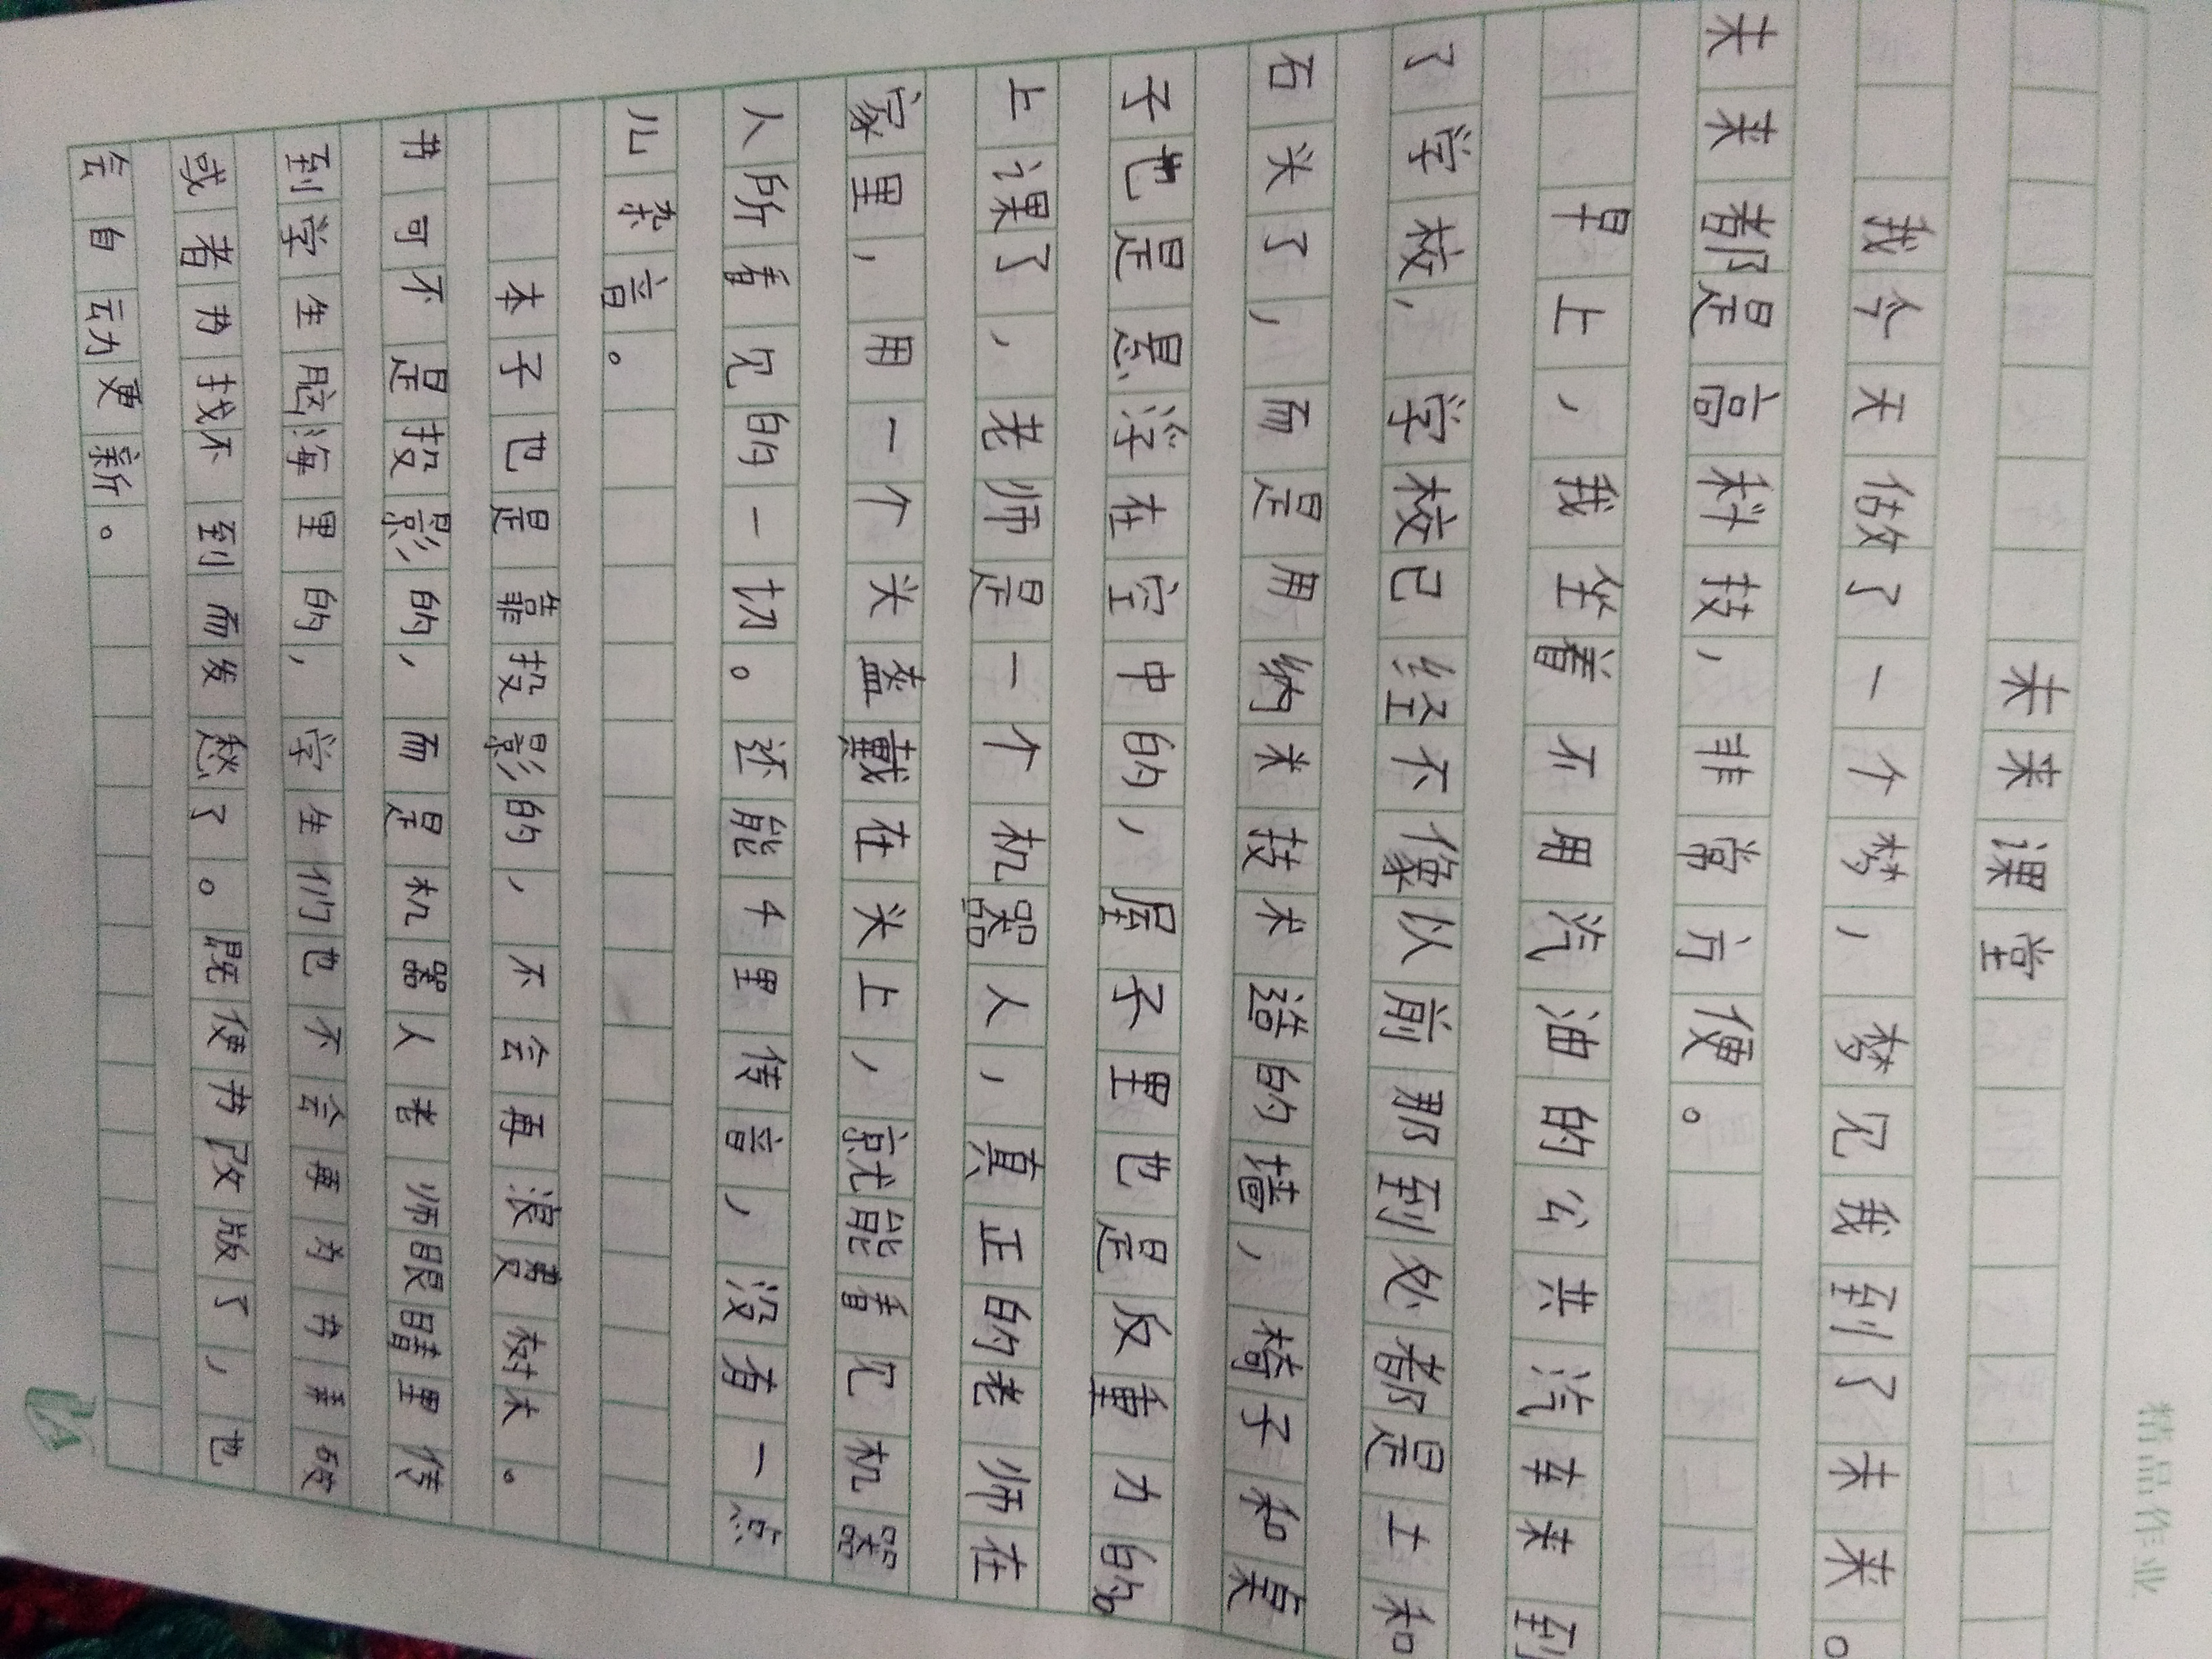 精品作业
未来课堂
我今天做了一个梦，梦见我到了未来。
未来都是高科技，非常方便。
早上，我坐着不用汽油的公共汽车来到
了学校，学校已经不像以前那到处都是土和
石头了，而是用纳米技术造的墙，椅子和桌
子也是悬浮在空中的，屋子里也是反重力的。
上课了，老师是一个机器人，真正的老师在
家里，用一个头盔戴在头上，就能看见机器
人所看见的一切。还能千里传音，没有一点
儿杂音。
本子也是靠投影的，不会再浪费树木。
书可不是投影的，而是机器人老师眼睛里传
到学生脑海里的，学生们也不会再为书弄破
或者书找不到而发愁了。既便书改版了，也
会自动更新。